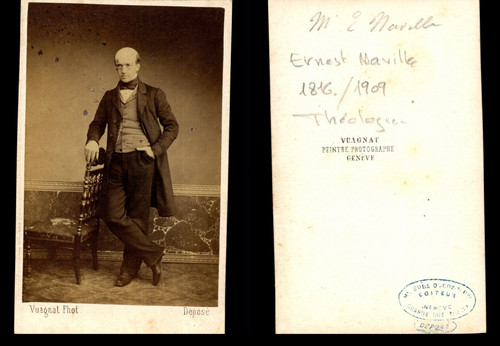 Vuagnat Phot Deposé
Mr E Naville
Ernest Naville
1816./1909
Théologien
VUAGNAT
PEINTRE PHOTOGRAPHE
GENÈVE
EDITEUR
GENÈVE
DÉPOSÉ